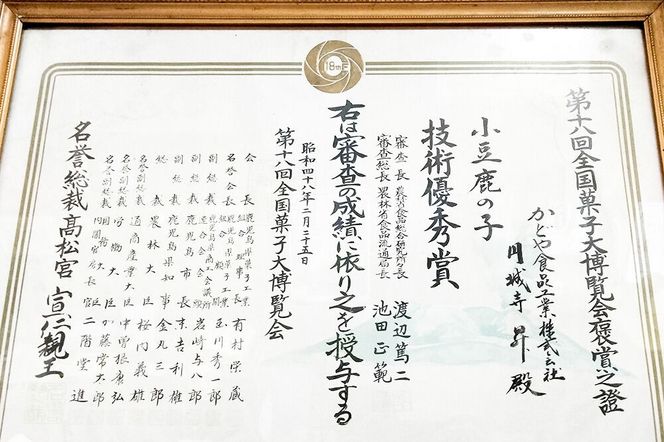 18th
第十八回全国菓子大博覧会褒賞之證
かどや食品工業株式会社
川城寺昇殿
小豆鹿の子
技術優秀賞
審査長 農林省食品総合研究所長 渡辺篤二
審査総長 農林省食品流通局長 池田正範
右は審査の成績に依り之を授与する
昭和四十八年二月二十五日
第十八回全国菓子大博覧会
会長 有村栄蔵
名誉会長 玉川秀一郎
副総裁 岩崎与八郎
副総裁 鹿児島市長 末吉利雄
総裁 鹿児島県知事 金丸三郎
名誉副総裁 農林大臣 桜内義雄
名誉副総裁 通商産業大臣 中曽根康弘
名誉副総裁 大臣 加藤常太郎
名誉副総裁 内閣官房長官 二階堂進
名誉総裁 高松宮 宣仁親王